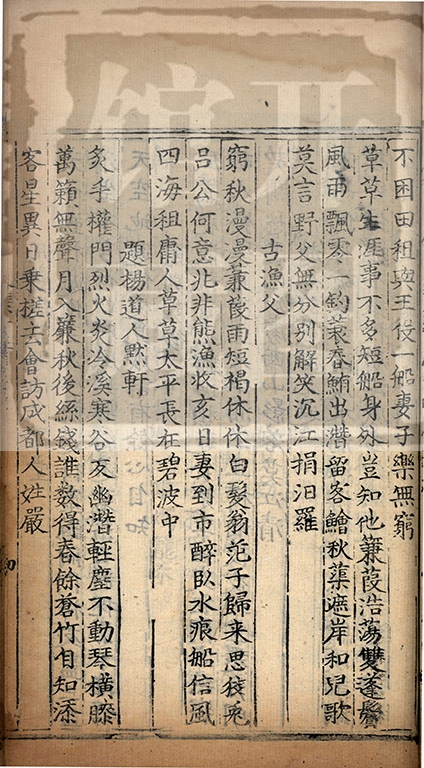 不困田租與王役一船妻子樂無窮
草草生涯事不多短船身外豈知他蒹葭浩蕩雙蓬鬢
風雨飄零一釣蓑春鮪出潛留客鱠秋蕖遮岸和兒歌
莫言野父無分別解笑沉江捐汨羅
古漁父
窮秋漫漫蒹葭雨短褐休休白髮翁范子歸來思狡兎
呂公何意兆非熊漁收亥日妻到市醉臥水痕船信風
四海租庸人草草太平長在碧波中
題楊道人默軒
炙手權門烈火炎冷溪寒谷反幽潛輕塵不動琴橫膝
萬籟無聲月入簾秋後絲錢誰數得春餘蒼竹自知添
客星異日乗槎去會訪成都人姓嚴